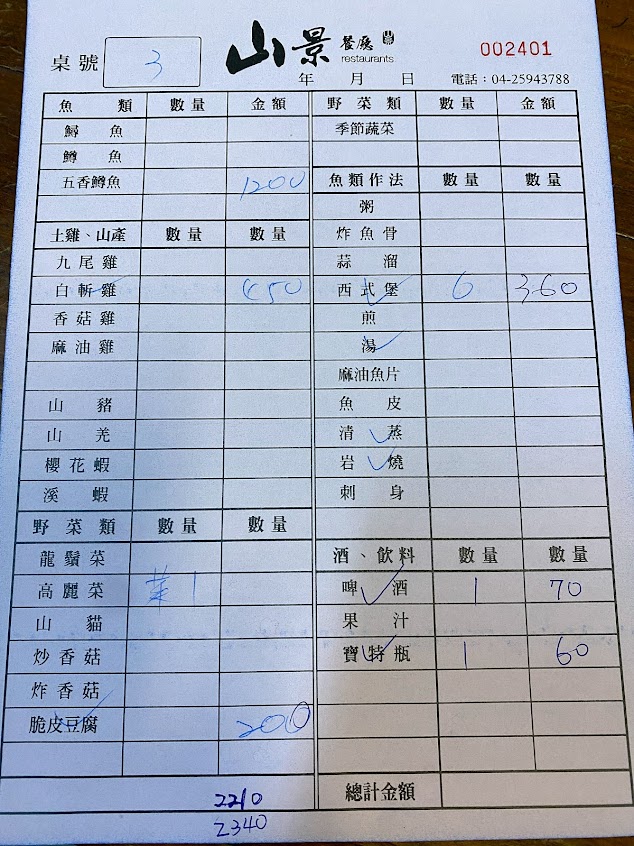 桌號 3 山景 餐廳 restaurants 002401
年 月 日 電話：04-25943788
魚類 數量 金額 野菜類 數量 金額
鱘魚 季節蔬菜
鱒魚
五香鱒魚 1200 魚類作法 數量 金額
粥
土雞、山產 數量 數量 炸魚骨
九尾雞 蒜溜
白斬雞 450 西式堡 6 360
香菇雞 煎
麻油雞 湯
麻油魚片
山豬 魚皮
山羌 清蒸
櫻花蝦 岩燒
溪蝦 刺身
野菜類 數量 數量
龍鬚菜 酒、飲料 數量 數量
高麗菜 菜 1 啤酒 1 70
山貓 果汁
炒香菇 寶特瓶 1 60
炸香菇
脆皮豆腐 200
總計金額
2210
2340